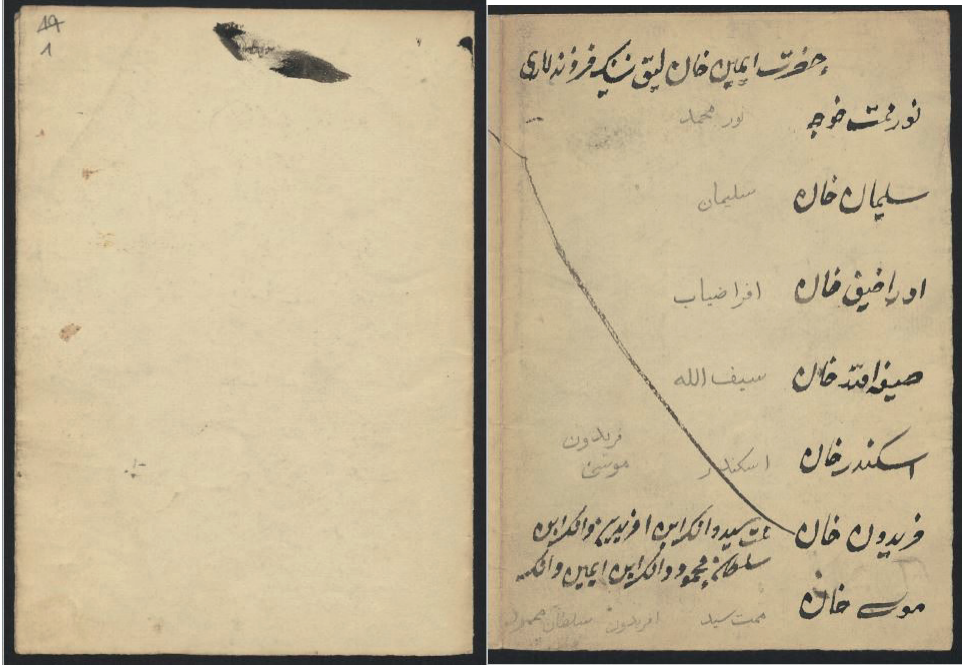 49
1
حضرت ایمین خان لیق نینک فرزندلاری
نور ممت خوجه نور محمد
سلیمان خان سلیمان
خان افراضیاب
خان سیف الله
اسکندر خان اسکندر فریدون موسی
فریدون خان سید وانکرابن افریدین وانکرابن
سلطان محمود وانکرابن ایمین وانکیه
موسی خان ممت سید افریدون سلطان محمود